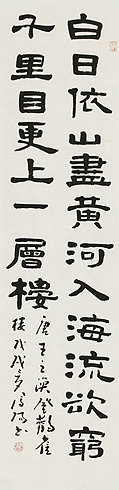 白日依山盡黃河入海流欲窮
千里目更上一層樓
唐王之渙登鸛雀
樓戊戌